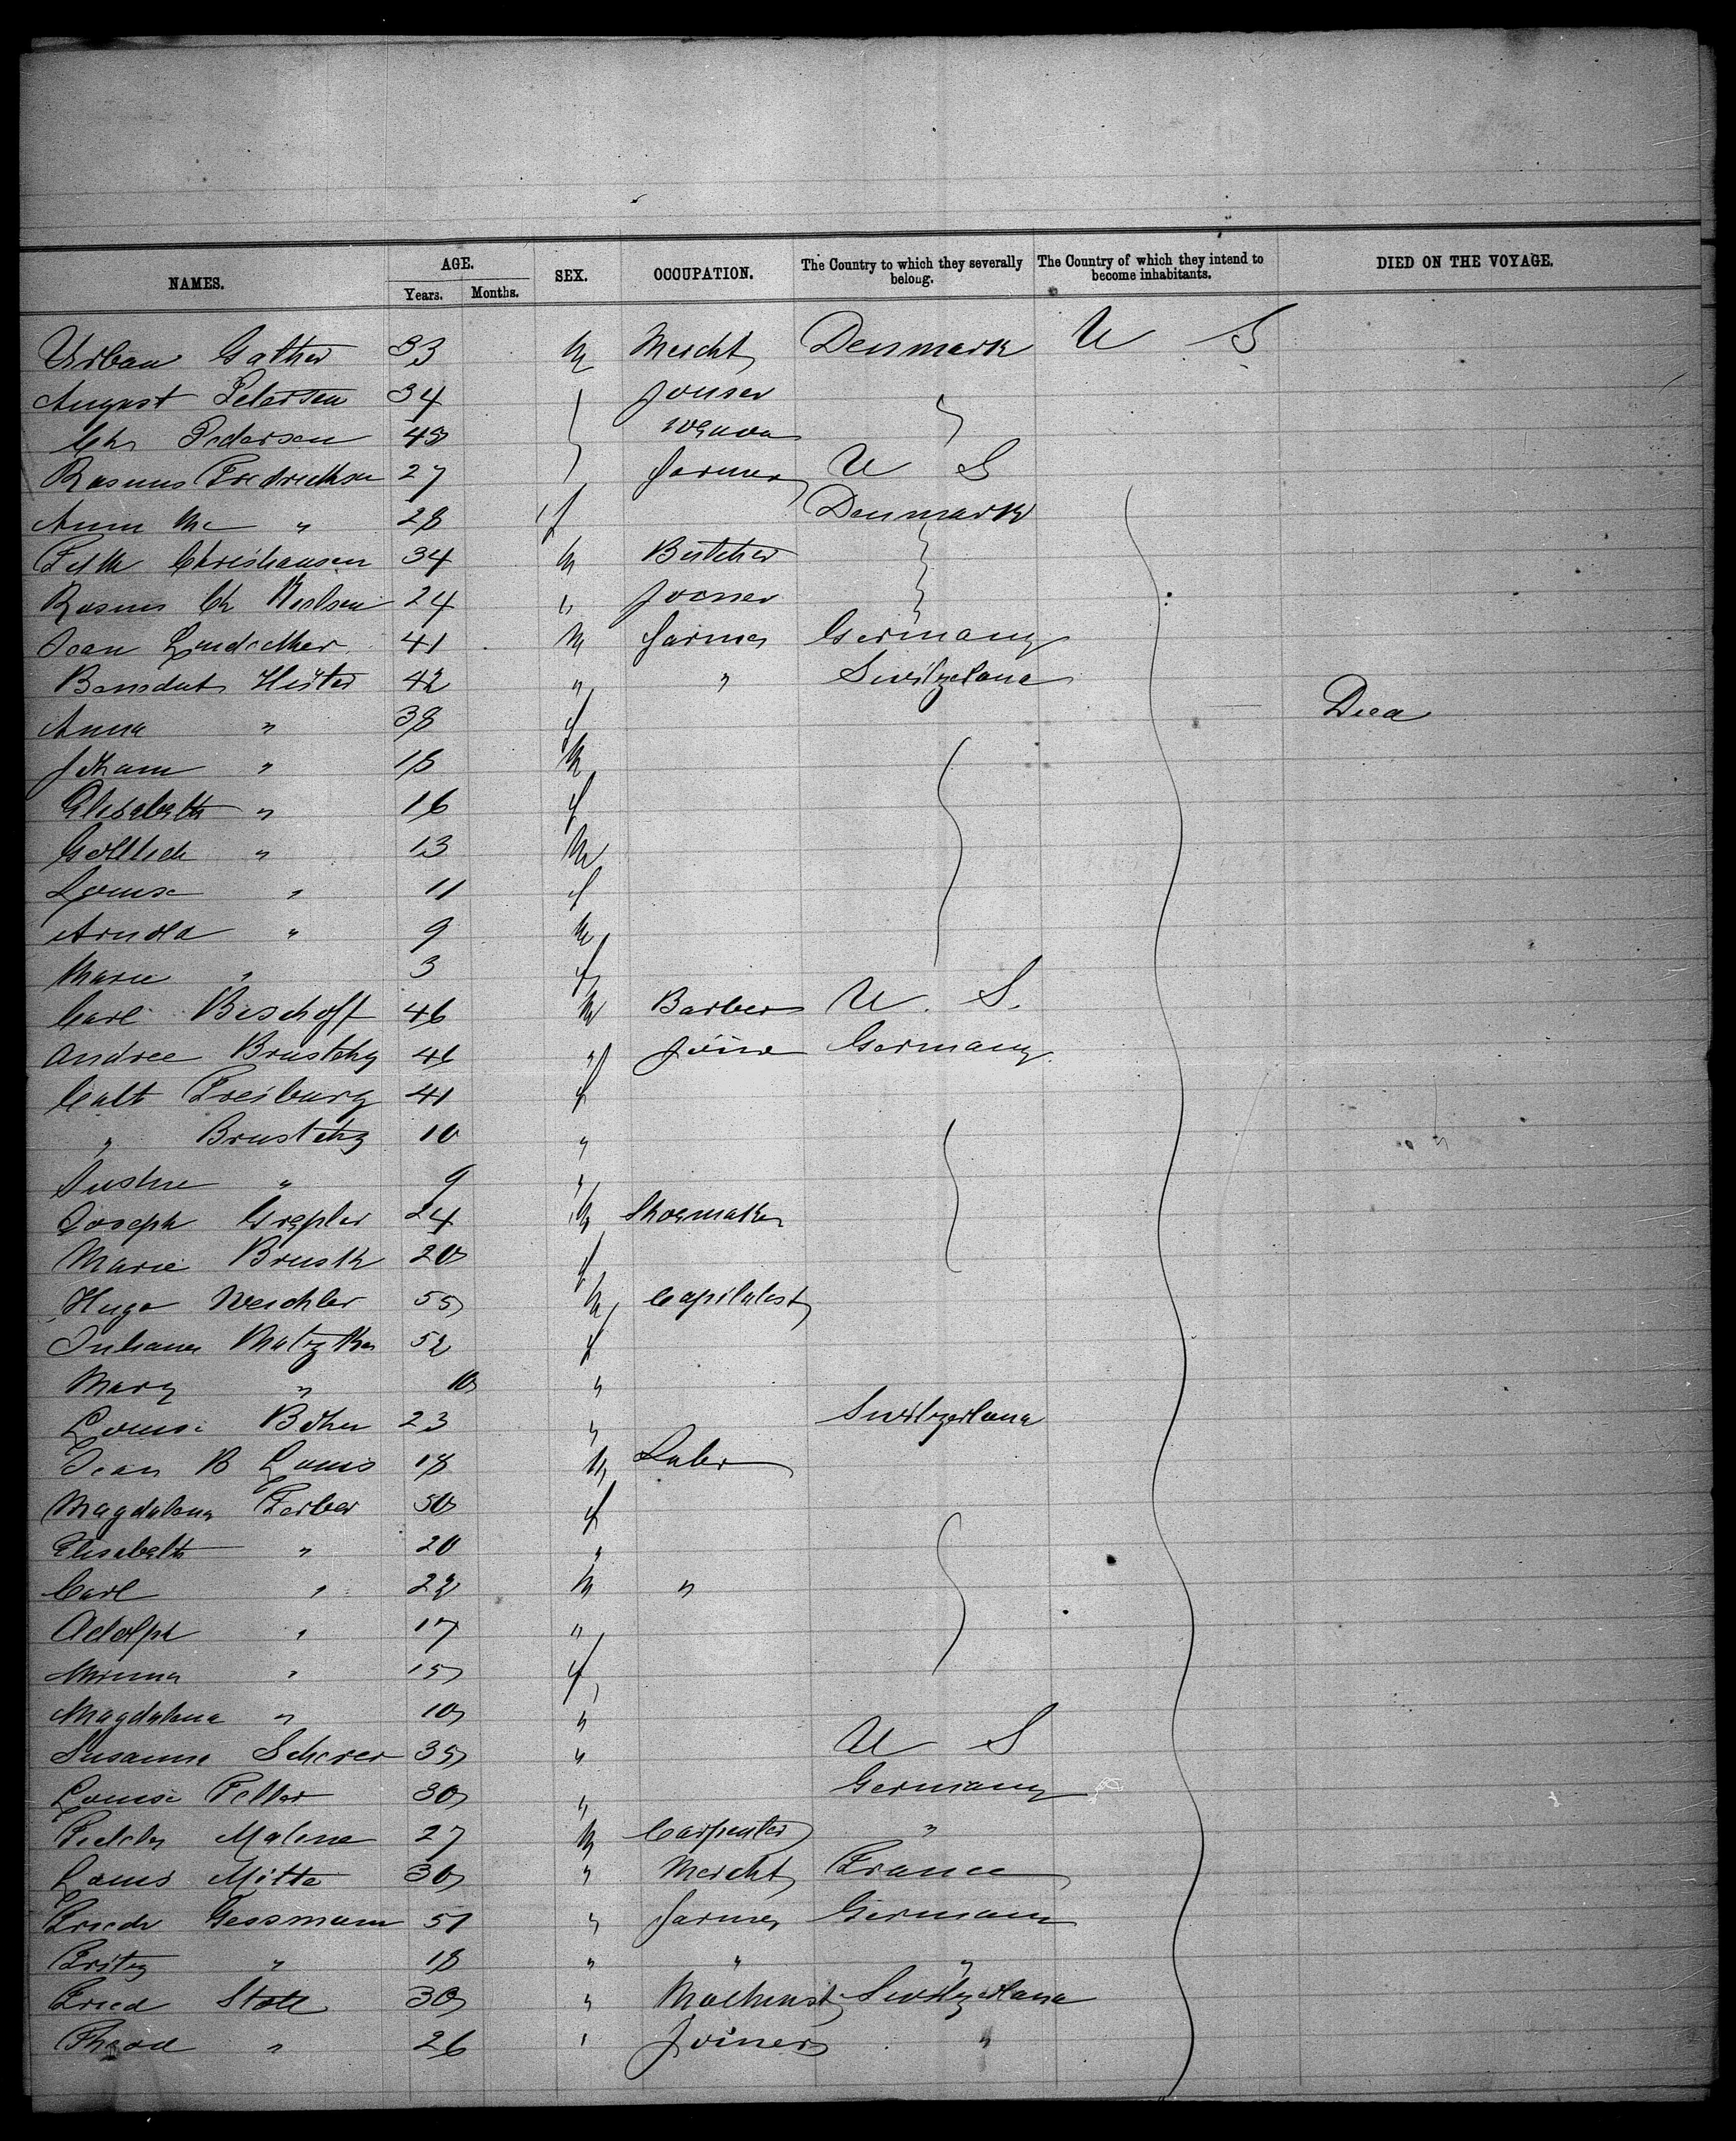 NAMES. AGE. SEX. OCCUPATION. The Country to which they severally belong. The Country of which they intend to become inhabitants. DIED ON THE VOYAGE.
Years. Months.
Urban Gather 33 M Mercht Denmark U S
August Petersen 34 Joiner
Chr Pedersen 45
Rasmus Fredricksen 27 farmer U S
Ann M " 28 f Denmark
Christiansen 34 M Butcher
Rasmus Ch Neilsen 24 " Joiner
Jean 41 M farmer Germany
42 " " Switzerland
Anna " 38 f Died
Johann " 18 M
Elisabeth " 16 f
Gottlieb " 13 M
Louise " 11 f
Arnold " 9 M
Marie " 3 f
Carl Bischoff 46 M Barber U. S.
Andree 46 " Joiner Germany
Freiburg 41 f
" 10 "
" 9 "
Joseph Grepler 24 M Shoemaker
Marie Brusk 20 f
Hugo Weichler 55 M Capitalist
52 f
Mary " 10 "
Louise 23 " Switzerland
Jean B Louis 18 M Labr
Magdalena Ferber 50 f
Elisabeth " 20 "
Carl " 22 M "
Adolph " 17 "
Minna " 15 f
Magdalena " 10 "
Susanna Scherer 35 " U S
Louise Feller 30 " Germany
Malone 27 M Carpenter "
Louis Mitte 30 " Mercht France
Friedr Gessmann 51 " farmer Germany
Fritz " 18 " " "
Fried Stoll 30 " Machinist Switzerland
Theod " 26 " Joiner "